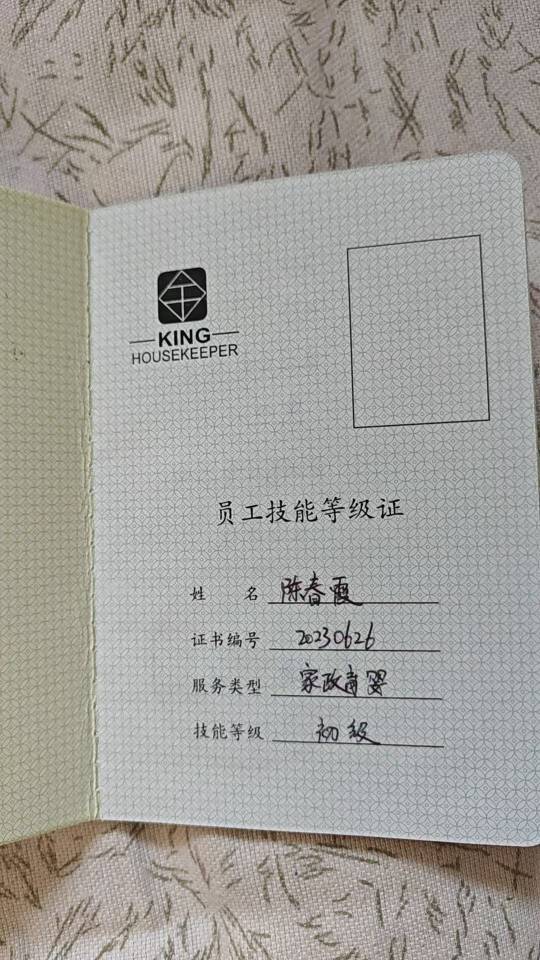 KING
HOUSEKEEPER
员工技能等级证
姓 名 陈春霞
证书编号 20230626
服务类型 家政育婴
技能等级 初级